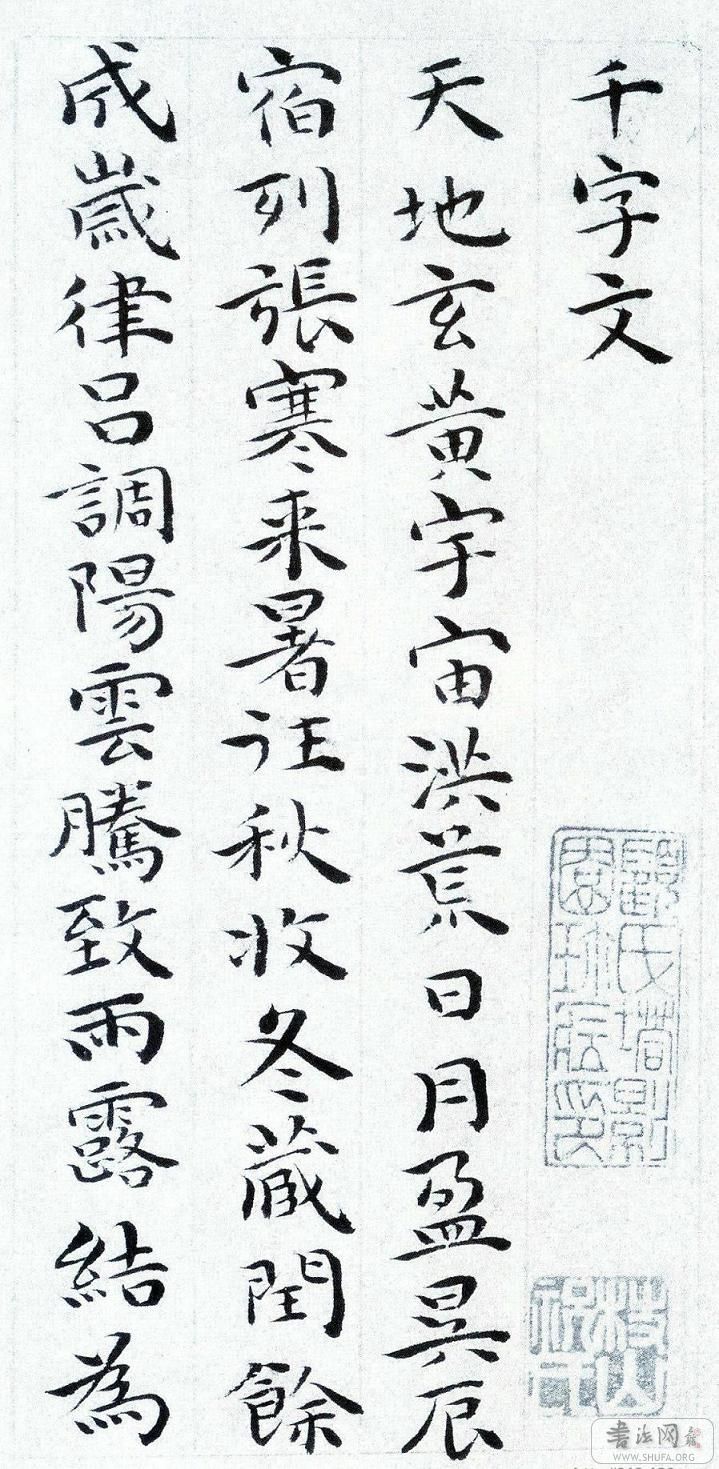 千字文
天地玄黄宇宙洪荒日月盈昃辰
宿列張寒来暑往秋收冬藏閏餘
成歲律呂調陽雲騰致雨露結為
顧氏塔影
園珍藏印
書法网
WWW.SHUFA.ORG